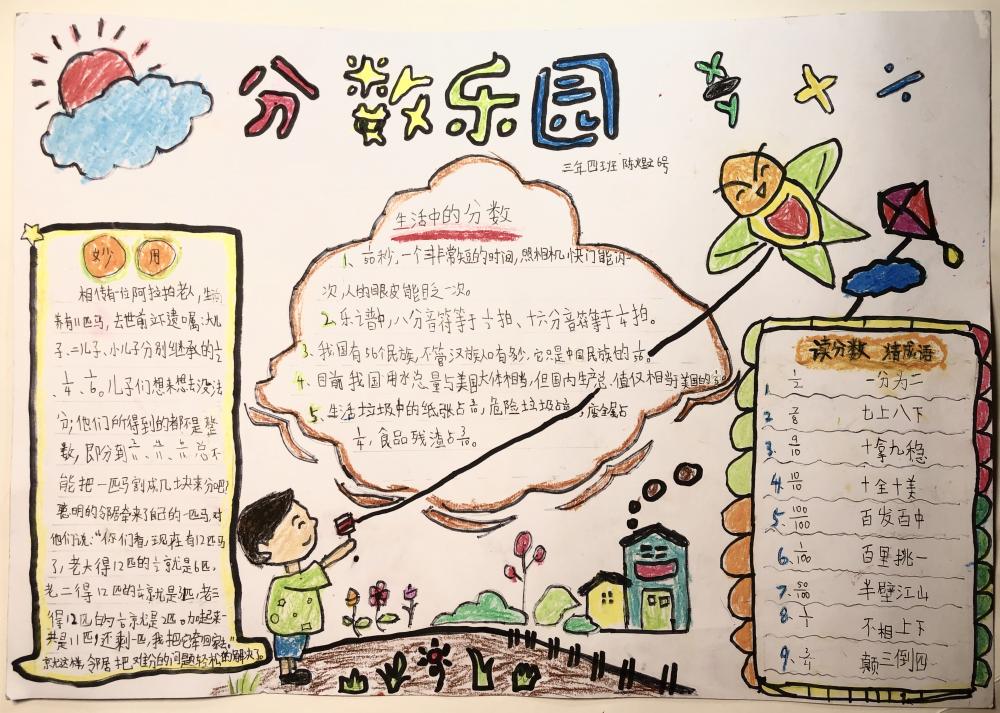 分数乐园
三年四班 陈煜 6号
妙用
相传有一位阿拉拍老人,生前
养有11匹马,去世前立下遗嘱:大儿
子、二儿子、小儿子分别继承的1/2
1/4、1/6。儿子们想来想去没法
分,他们所得到的都不是整
数,即分到 总不
能把一匹马割成几块来分吧?
聪明的邻居牵来了自己的一匹马,对
他们说:“你们看,现在有12匹马
了,老大得12匹的1/2就是6匹,
老二得12匹的1/4就是3匹,老三
得12匹的1/6就是2匹。加起来一
共是11匹,还剩一匹,我把它牵回家去。”
就这样,邻居把难分的问题轻松的解决了。
生活中的分数
1、 秒,一个非常短的时间,照相机快门能闪一
次,人的眼皮能眨一次。
2、乐谱中,八分音符等于1/2拍、十六分音符等于1/4拍。
3、我国有56个民族,不管汉族人口有多少,它只是中国民族的1/56。
4、目前我国用水总量与美国大体相当,但国内生产总值仅相当美国的
5、生活垃圾中的纸张占 ,危险垃圾占 ,废金属占
1/4,食品残渣占3/10。
读分数 猜成语
1、1/2 一分为二
2、7/8 七上八下
3、9/10 十拿九稳
4、10/10 十全十美
5、100/100 百发百中
6、1/100 百里挑一
7、50/100 半壁江山
8、1/1 不相上下
9、3/4 颠三倒四